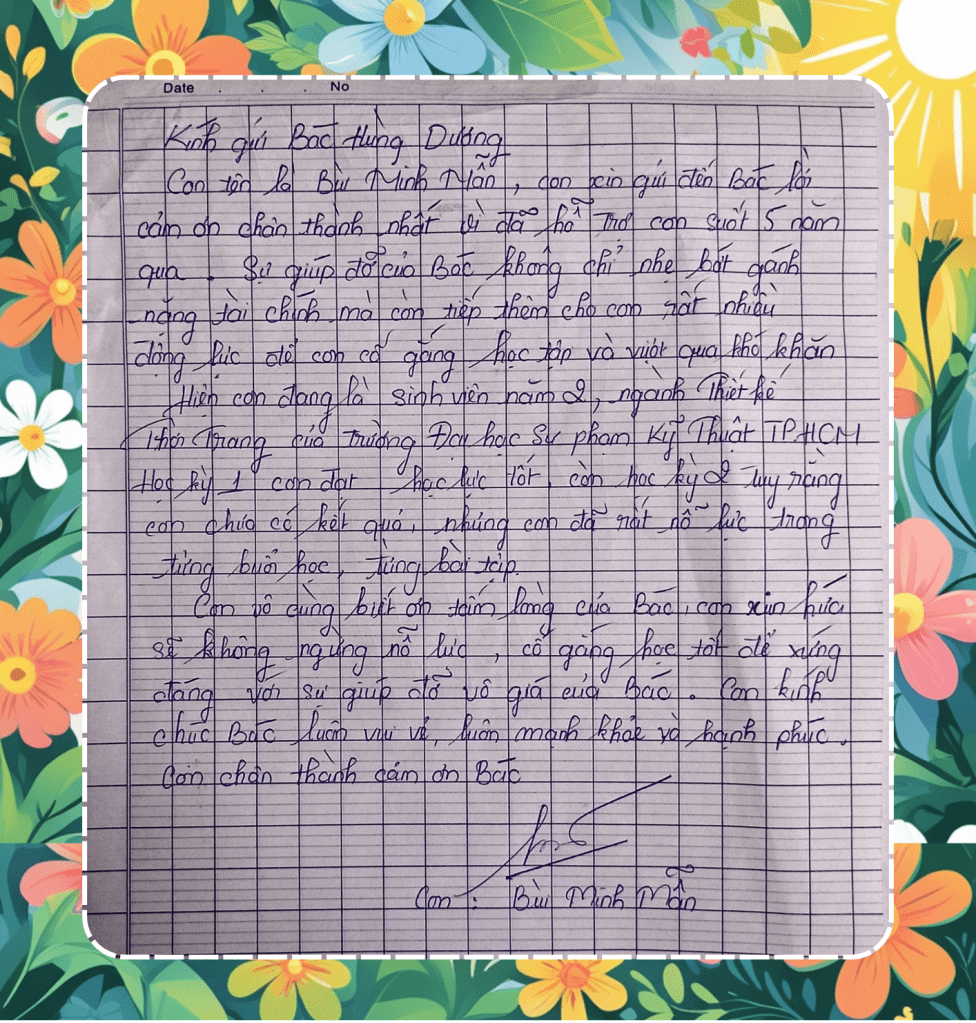 Date . . . No
Kính gửi Bác Hùng Dương
Con tên là Bùi Minh Mẫn, con xin gửi đến Bác lời
cảm ơn chân thành nhất vì đã hỗ trợ con suốt 5 năm
qua. Sự giúp đỡ của Bác không chỉ nhẹ bớt gánh
nặng tài chính mà còn tiếp thêm cho con rất nhiều
động lực để con cố gắng học tập và vượt qua khó khăn
Hiện con đang là sinh viên năm 2, ngành Thiết kế
Thời Trang của trường Đại học Sư phạm Kỹ Thuật TP.HCM
Học kỳ 1 con đạt học lực tốt, còn học kỳ 2 tuy rằng
con chưa có kết quả, nhưng con đã rất nỗ lực trong
từng buổi học, từng bài tập.
Con vô cùng biết ơn tấm lòng của Bác, con xin hứa
sẽ không ngừng nỗ lực, cố gắng học tốt để xứng
đáng với sự giúp đỡ vô giá của Bác. Con kính
chúc Bác luôn vui vẻ, luôn mạnh khỏe và hạnh phúc.
Con chân thành cảm ơn Bác
Con: Bùi Minh Mẫn